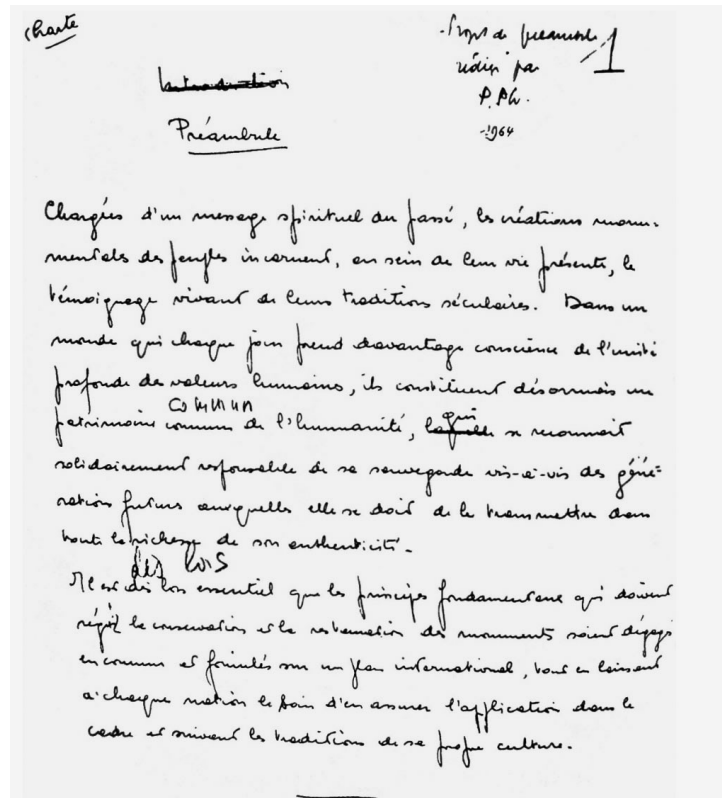 Charte
- Projet de préambule
rédigé par
P. Ph.
1
-1964
Introduction
Préambule
Chargées d'un message spirituel du passé, les créations monu-
mentales des peuples incarnent, au sein de leur vie présente, le
témoignage vivant de leurs traditions séculaires. Dans un
monde qui chaque jour prend davantage conscience de l'unité
profonde des valeurs humaines, ils constituent désormais un
commun
patrimoine commun de l'humanité, laquelle qui se reconnait
solidairement responsable de sa sauvegarde vis-à-vis des géné-
rations futures auxquelles elle se doit de le transmettre dans
toute la richesse de son authenticité.
dès lors
Il est dès lors essentiel que les principes fondamentaux qui doivent
régir la conservation et la restauration des monuments soient dégagés
en commun et formulés sur un plan international, tout en laissant
à chaque nation le soin d'en assurer l'application dans le
cadre et suivant les traditions de sa propre culture.